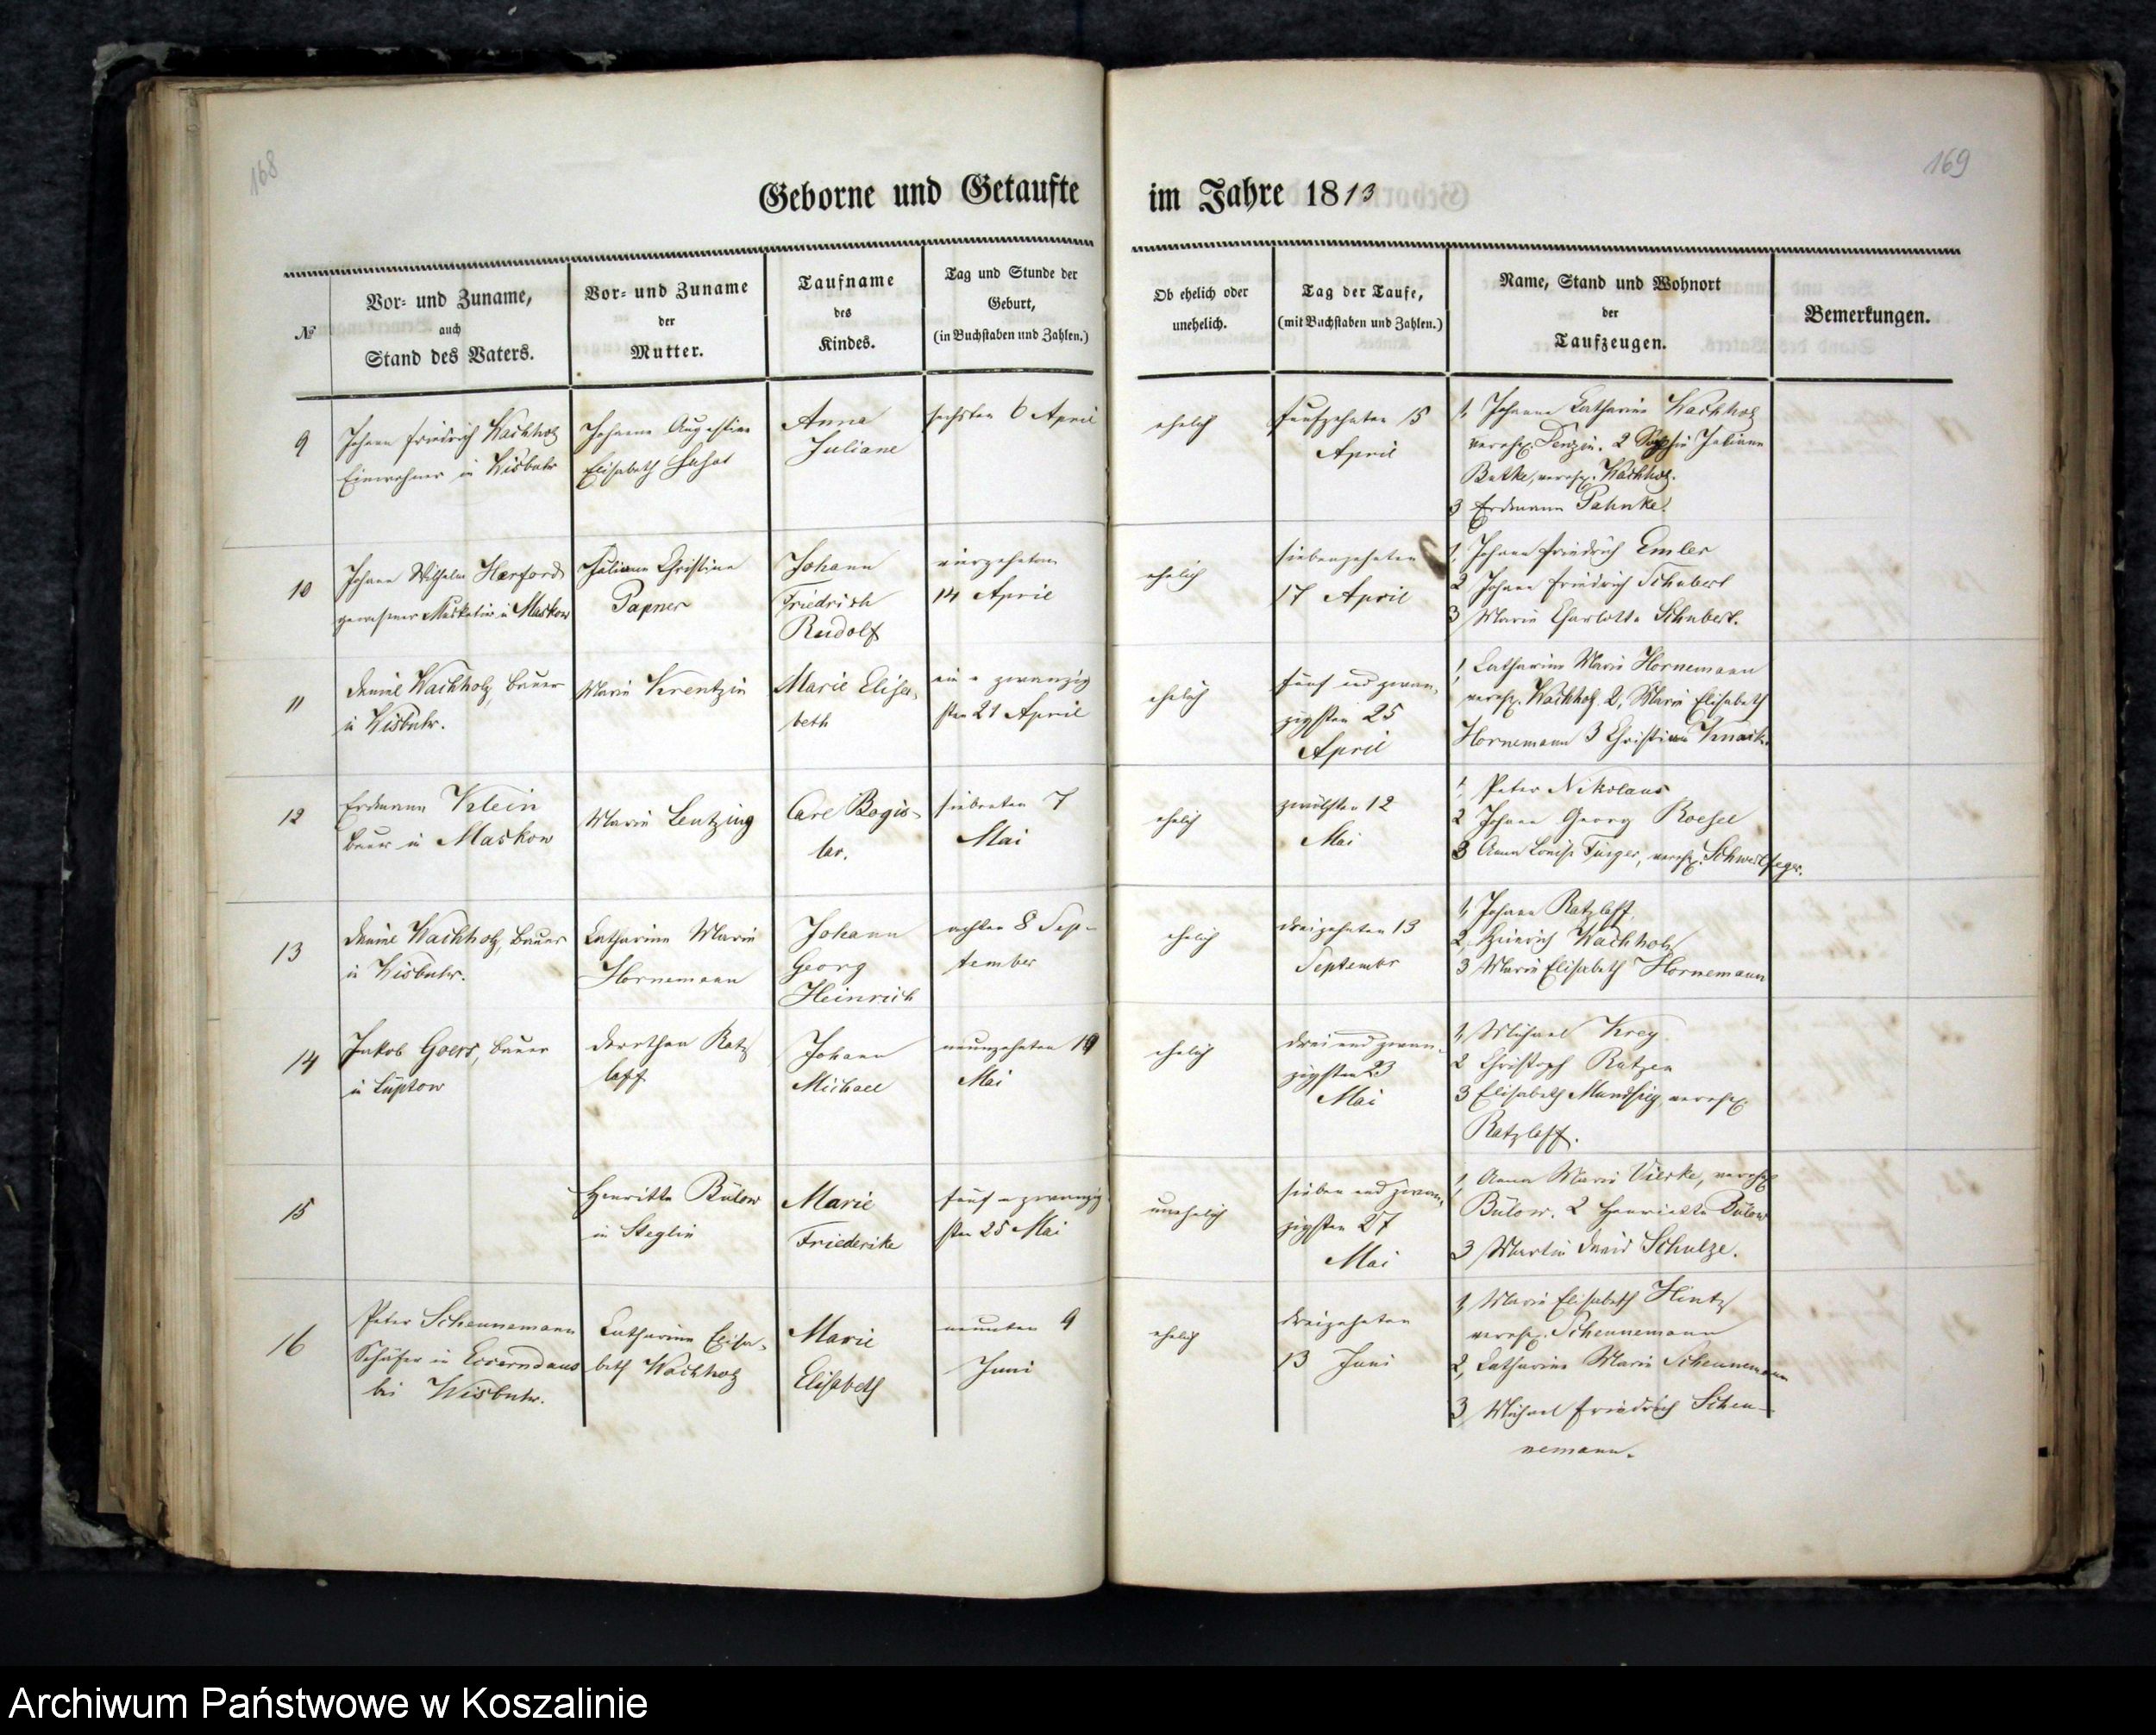 168
169
Geborne und Getaufte im Jahre 1813
№
Vor- und Zuname,
auch
Stand des Vaters.
Vor- und Zuname
der
Mutter.
Taufname
des
Kindes.
Tag und Stunde der
Geburt,
(in Buchstaben und Zahlen.)
Ob ehelich oder
unehelich.
Tag der Taufe,
(mit Buchstaben und Zahlen.)
Name, Stand und Wohnort
der
Taufzeugen.
Bemerkungen.
9
Johann Friedrich Wachholz
Einwohner in Wisbuhr
Johanne Augustine
Elisabeth
Anna
Juliane
sechsten 6 April
ehelich
funfzehnten 15
April
1, Johanne Catharine Wachholz
verehl. Denzin. 2 Sophie Juliane
Butke, verehl. Wachholz.
3 Erdmann Pahnke.
10
Johann Wilhelm Harford
gewesener Musketier in Maskow
Juliane Christine
Papner
Johann
Friedrich
Rudolf
vierzehnten
14 April
ehelich
siebenzehnten
17 April
1, Johann Friedrich Emler
2 Johann Friedrich Schubert
3 Marie Charlotte Schubert.
11
Daniel Wachholz, Bauer
in Wisbuhr.
Marie Krentzin
Marie Elisa-
beth
ein u zwanzig
sten 21 April
ehelich
fünf und zwan-
zigsten 25
April
1, Catharine Marie Hornemann
verehl. Wachholz. 2, Marie Elisabeth
Hornemann 3 Christian Knack.
12
Erdmann Klein
Bauer in Maskow
Marie Lentzing
Carl Bogis-
lav.
siebenten 7
Mai
ehelich
zwölften 12
Mai
1, Peter Nikolaus
2 Johann Georg Roesel
3 Anna Louise Turger, verehl. Schwerdfeger.
13
Daniel Wachholz, Bauer
in Wisbuhr.
Catharine Marie
Hornemann
Johann
Georg
Heinrich
achten 8 Sep-
tember
ehelich
dreizehnten 13
September
1, Johann Ratzlaff,
2, Heinrich Wachholz
3 Marie Elisabeth Hornemann
14
Jakob Goers, Bauer
in Lüptow
Dorothea Ratz
laff
Johann
Michael
neunzehnten 19
Mai
ehelich
drei und zwan-
zigsten 23
Mai
1, Michael Krey
2 Christoph Ratzen
3 Elisabeth Mundsieg, verehl.
Ratzlaff.
15
Henriette Bülow
in Steglin
Marie
Friederike
fünf u zwanzig
sten 25 Mai
unehelich
sieben und zwan-
zigsten 27
Mai
1, Anna Marie Vierke, verehl.
Bülow. 2 Henriette Bülow
3 Martin David Schulze.
16
Peter Scheunemann
Schäfer in
bei Wisbuhr.
Catharine Elisa-
beth Wachholz
Marie
Elisabeth
neunten 9
Juni
ehelich
dreizehnten
13 Juni
1, Marie Elisabeth Hintz
verehl. Scheunemann
2, Catharine Marie Scheunemann
3 Michael Friedrich Scheu-
nemann.
Archiwum Państwowe w Koszalinie